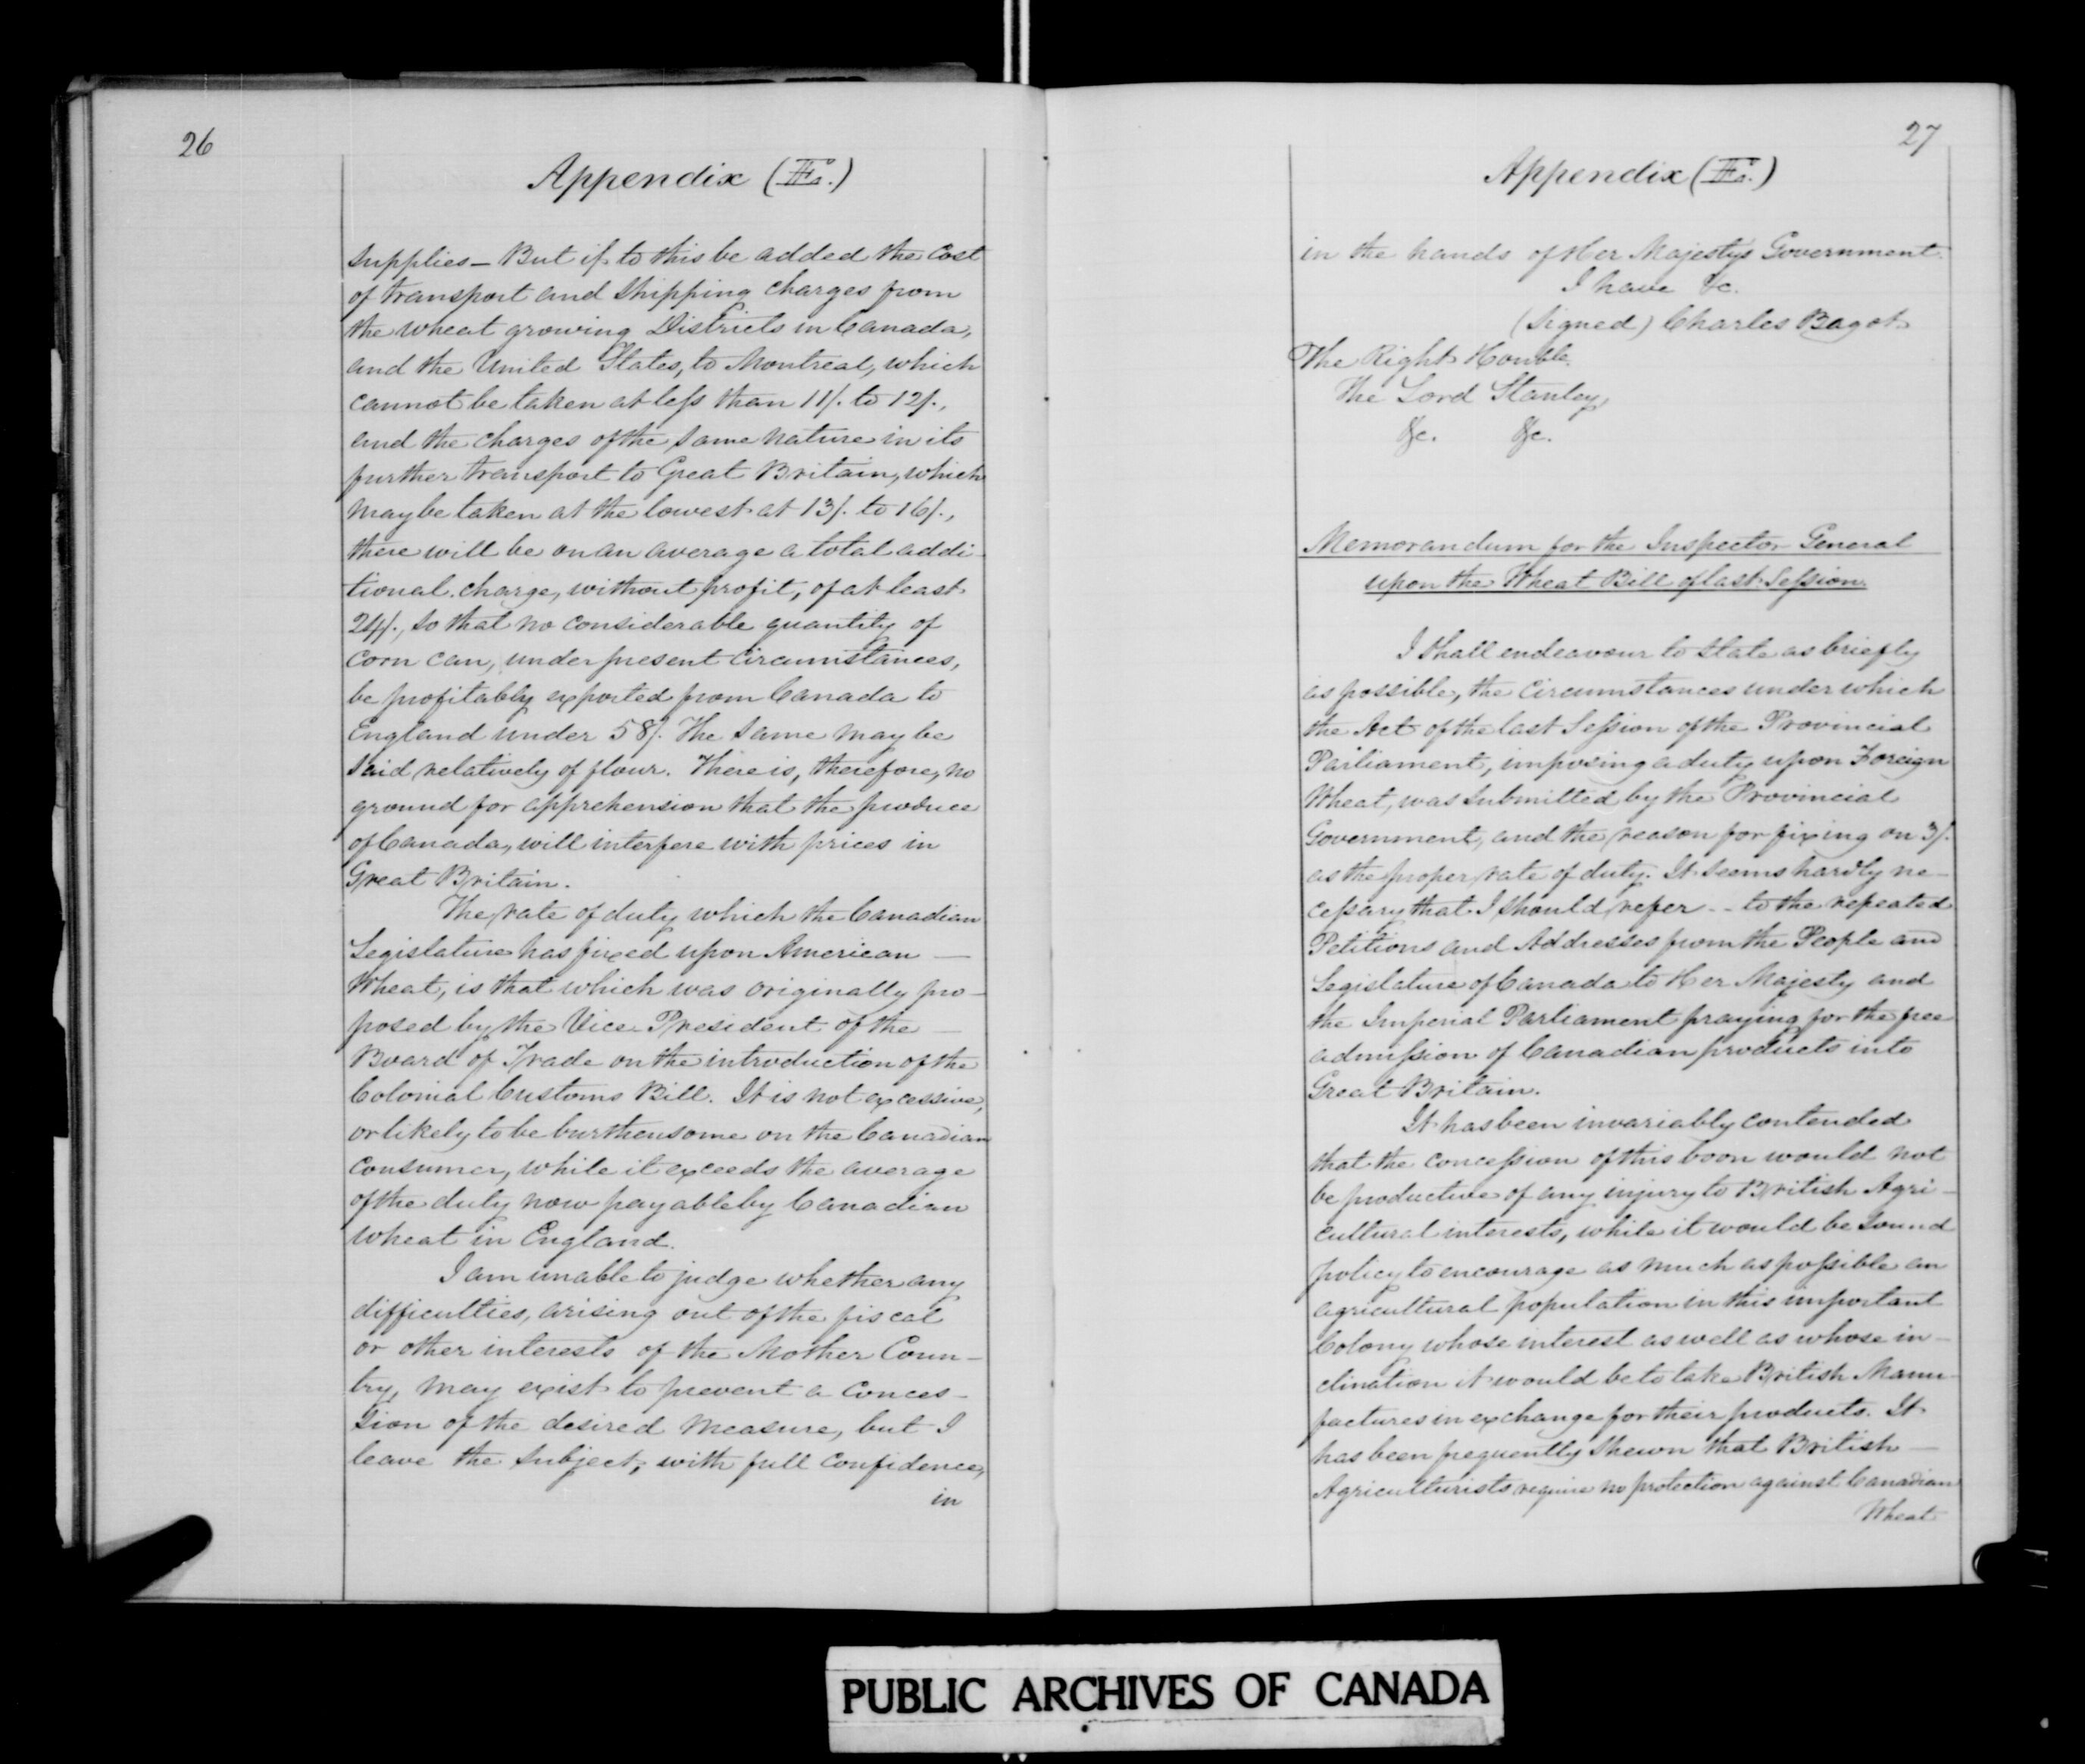 26
Appendix (II.)
supplies - But if to this be added the Cost
of transport and Shipping Charges from
the wheat growing Districts in Canada,
and the United States, to Montreal, which
cannot be taken at less than 11/. to 12/.,
and the charges of the same nature in its
further transport to Great Britain, which
may be taken at the lowest at 13/. to 16/.,
there will be on an average a total addi-
tional charge, without profit, of at least
24/., so that no considerable quantity of
Corn can, under present Circumstances,
be profitably exported from Canada to
England under 58/. The same may be
said relatively of flour. There is, therefore, no
ground for apprehension that the produce
of Canada, will interfere with prices in
Great Britain.
The rate of duty which the Canadian
Legislature has fixed upon American —
Wheat, is that which was originally pro-
posed by the Vice President of the —
Board of Trade on the introduction of the
Colonial Customs Bill. It is not excessive,
or likely to be burthensome on the Canadian
Consumer, while it exceeds the average
of the duty now payable by Canadian
wheat in England.
I am unable to judge whether any
difficulties, arising out of the fiscal
or other interests of the Mother Coun-
try, may exist to prevent a Conces-
sion of the desired measure, but I
leave the subject, with full Confidence,
in
27
Appendix (II.)
in the hands of Her Majesty's Government.
I have &c.
(Signed) Charles Bagot
The Right Honble.
The Lord Stanley,
&c. &c.
Memorandum for the Inspector General
upon the Wheat Bill of last Session.
I Shall endeavour to State as briefly
as possible, the Circumstances under which
the Act of the last Session of the Provincial
Parliament, imposing a duty upon Foreign
Wheat, was submitted by the Provincial
Government, and the reason for fixing on 3/.
as the proper rate of duty. It seems hardly ne-
cessary that I should refer -- to the repeated
Petitions and Addresses from the People and
Legislature of Canada to Her Majesty and
the Imperial Parliament praying for the free
admission of Canadian products into
Great Britain.
It has been invariably contended
that the Concession of this boon would not
be productive of any injury to British Agri-
cultural interests, while it would be sound
policy to encourage as much as possible an
agricultural population in this important
Colony whose interest as well as whose in-
clination it would be to take British Manu-
factures in exchange for their products. It
has been frequently shewn that British —
Agriculturists require no protection against Canadian
Wheat
PUBLIC ARCHIVES OF CANADA